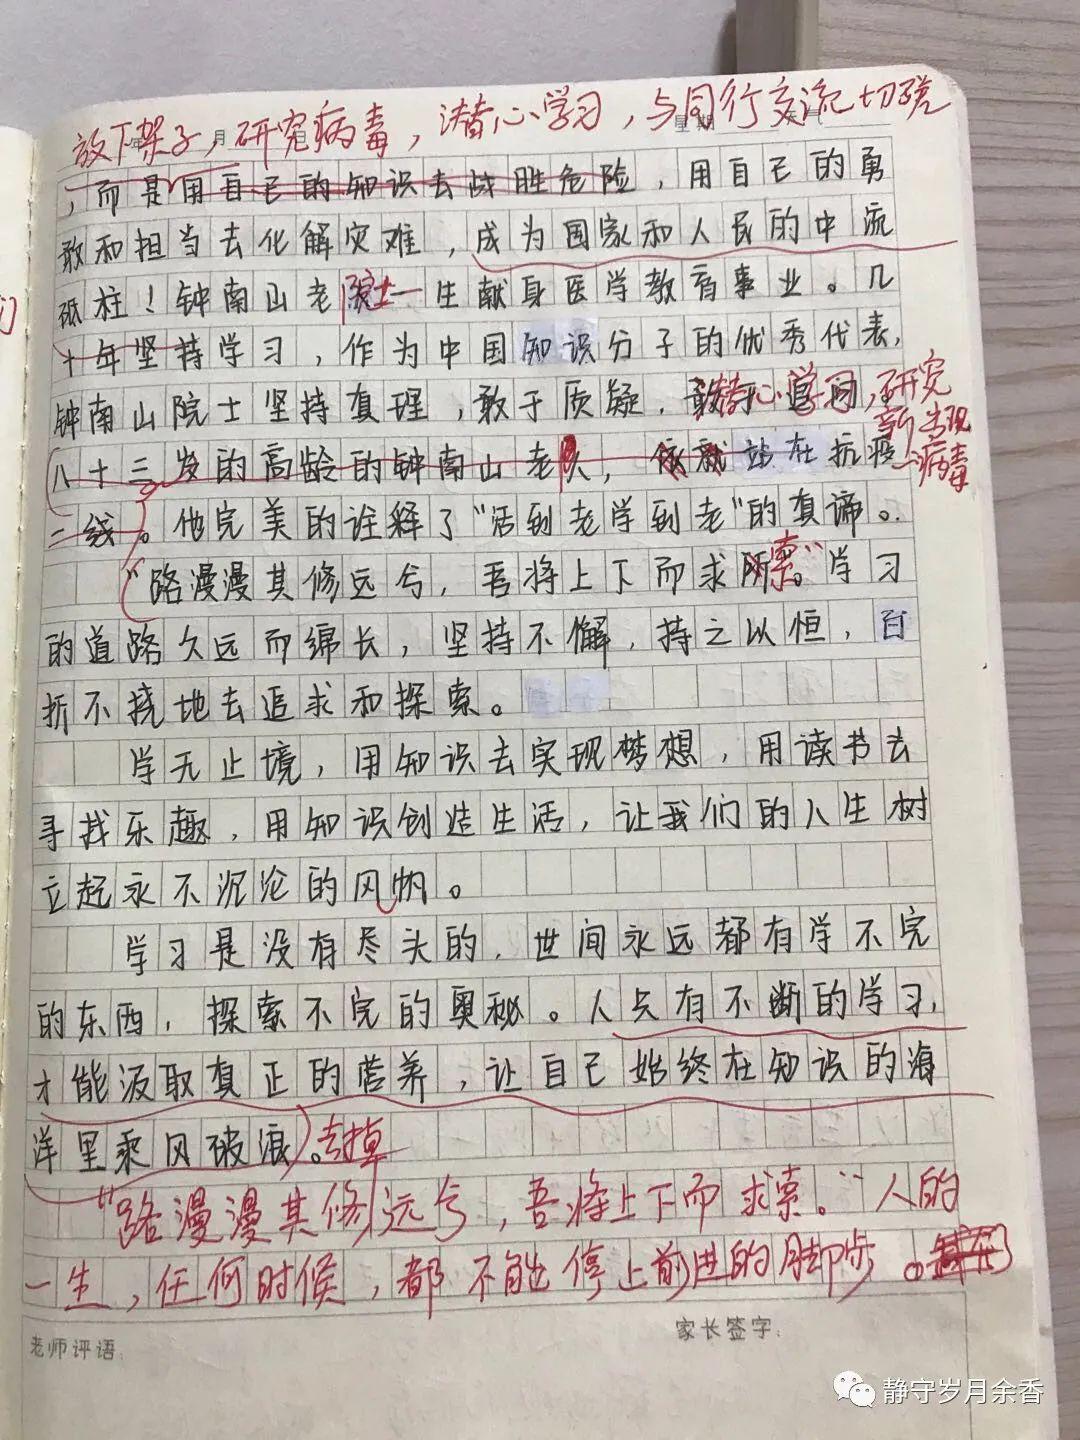 放下架子，研究病毒，潜心学习，与同行交流切磋
月 日 星期 天气
，而是用自己的知识去战胜危险，用自己的勇
敢和担当去化解灾难，成为国家和人民的中流
砥柱！钟南山老院士一生献身医学教育事业。几
十年坚持学习，作为中国知识分子的优秀代表，
钟南山院士坚持真理，敢于质疑，敢于追问，
潜心学习，研究
新出现
病毒
八十三岁的高龄的钟南山老人，依就站在抗疫
一线。他完美的诠释了“活到老学到老”的真谛。
“路漫漫其修远兮，吾将上下而求所索。”学习
的道路久远而绵长，坚持不懈，持之以恒，百
折不挠地去追求和探索。
学无止境，用知识去实现梦想，用读书去
寻找乐趣，用知识创造生活，让我们的人生树
立起永不沉沦的风帆。
学习是没有尽头的，世间永远都有学不完
的东西，探索不完的奥秘。人只有不断的学习，
才能汲取真正的营养，让自己始终在知识的海
洋里乘风破浪。去掉
“路漫漫其修远兮，吾将上下而求索。”人的
一生，任何时候，都不能停止前进的脚步。
老师评语：
家长签字：
静守岁月余香